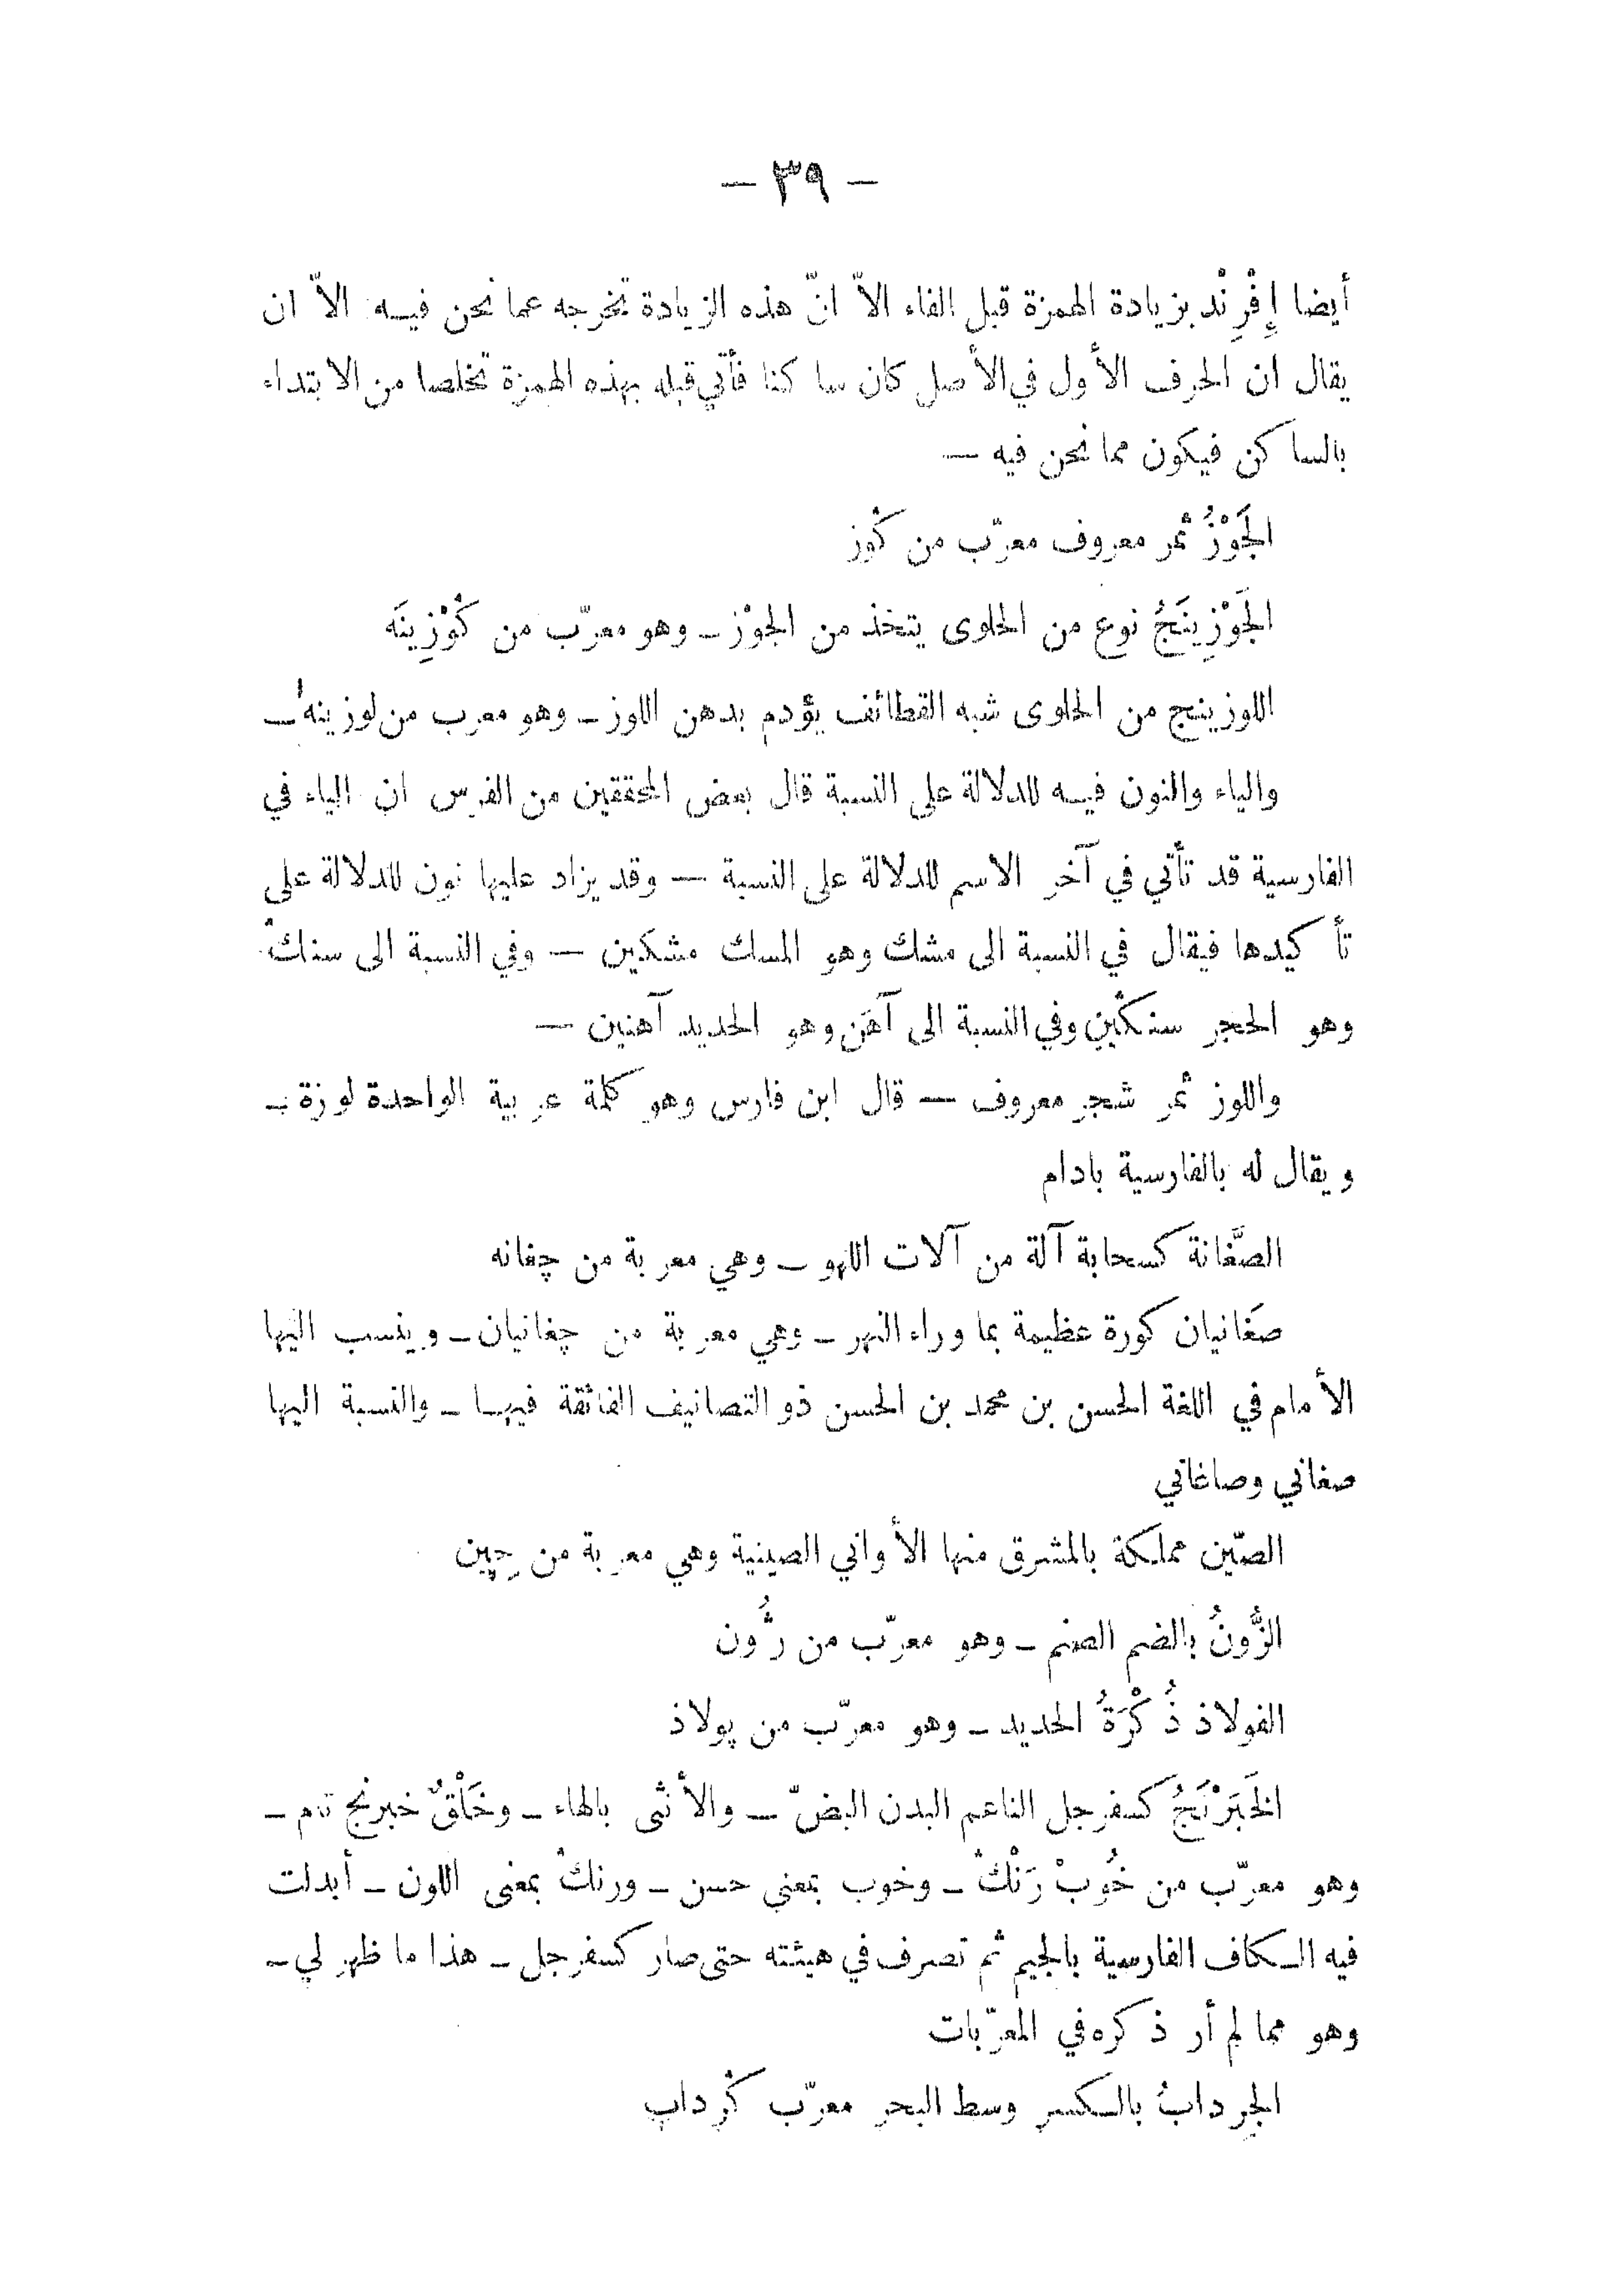 — ٣٩ —
أيضا إِفْرِنْد بزيادة الهمزة قبل الفاء الاّ انّ هذه الزيادة تخرجه عما نحن فيه الاّ ان
يقال ان الحرف الأول في الأصل كان ساكنا فأتي قبله بهذه الهمزة تخلصا من الابتداء
بالساكن فيكون مما نحن فيه —
الجَوْزُ ثمر معروف معرّب من گوز
الجَوْزِينَجُ نوع من الحلوى يتخذ من الجوْز — وهو معرّب من گَوْزِينَه
اللوزينج من الحلوى شبه القطائف يؤدم بدهن اللوز — وهو معرب من لوزينه —
والياء والنون فيه للدلالة على النسبة قال بعض المحققين من الفرس ان الياء في
الفارسية قد تأتي في آخر الاسم للدلالة على النسبة — وقد يزاد عليها نون للدلالة على
تأكيدها فيقال في النسبة الى مشك وهو المسك مشكين — وفي النسبة الى سنگ
وهو الحجر سنگين وفي النسبة الى آهَن وهو الحديد آهنين —
واللوز ثمر شجر معروف — قال ابن فارس وهو كلمة عربية الواحدة لوزة —
ويقال له بالفارسية بادام
الصَّغانة كسحابة آلة من آلات اللهو — وهي معربة من چغانه
صغَانيان كورة عظيمة بما وراء النهر — وهي معربة من چغانيان — وينسب اليها
الأمام في اللغة الحسن بن محمد بن الحسن ذو التصانيف الفائقة فيها — والنسبة اليها
صغاني وصاغاني
الصّين مملكة بالمشرق منها الأواني الصينية وهي معربة من چِين
الزُّونُ بالضم الصنم — وهو معرّب من ژُون
الفولاذ ذُكْرَةُ الحديد — وهو معرّب من پولاذ
الخَبَرْنَجُ كسفرجل الناعم البدن البضّ — والأنثى بالهاء — وخَلْقٌ خبرنج تام —
وهو معرّب من خُوبْ رَنْگ — وخوب بمعنى حسن — ورنگ بمعنى اللون — أبدلت
فيه الكاف الفارسية بالجيم ثم تصرف في هيئته حتى صار كسفرجل — هذا ما ظهر لي —
وهو مما لم أر ذكره في المعرّبات
الجِردابُ بالكسر وسط البحر معرّب گرداب